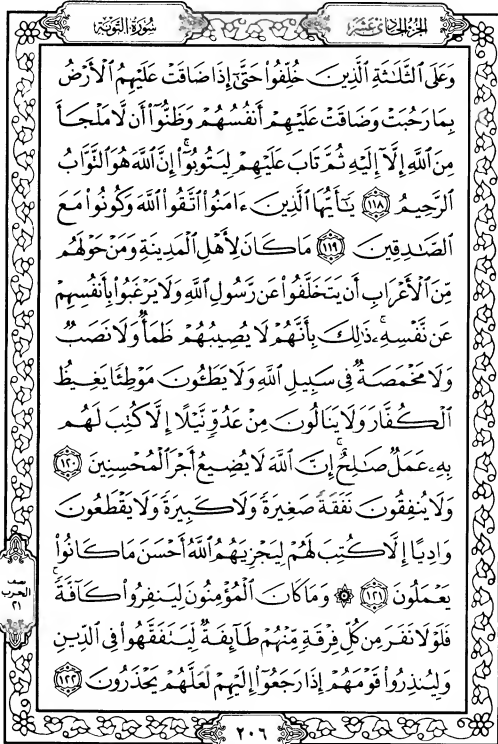 سُورَةُ التَّوْبَةِ
الجُزْءُ الحَادِي عَشَرَ
وَعَلَى ٱلثَّلَٰثَةِ ٱلَّذِينَ خُلِّفُوا۟ حَتَّىٰٓ إِذَا ضَاقَتْ عَلَيْهِمُ ٱلْأَرْضُ
بِمَا رَحُبَتْ وَضَاقَتْ عَلَيْهِمْ أَنفُسُهُمْ وَظَنُّوٓا۟ أَن لَّا مَلْجَأَ
مِنَ ٱللَّهِ إِلَّآ إِلَيْهِ ثُمَّ تَابَ عَلَيْهِمْ لِيَتُوبُوٓا۟ۚ إِنَّ ٱللَّهَ هُوَ ٱلتَّوَّابُ
ٱلرَّحِيمُ ١١٨ يَٰٓأَيُّهَا ٱلَّذِينَ ءَامَنُوا۟ ٱتَّقُوا۟ ٱللَّهَ وَكُونُوا۟ مَعَ
ٱلصَّٰدِقِينَ ١١٩ مَا كَانَ لِأَهْلِ ٱلْمَدِينَةِ وَمَنْ حَوْلَهُم
مِّنَ ٱلْأَعْرَابِ أَن يَتَخَلَّفُوا۟ عَن رَّسُولِ ٱللَّهِ وَلَا يَرْغَبُوا۟ بِأَنفُسِهِمْ
عَن نَّفْسِهِۦۚ ذَٰلِكَ بِأَنَّهُمْ لَا يُصِيبُهُمْ ظَمَأٌ وَلَا نَصَبٌ
وَلَا مَخْمَصَةٌ فِى سَبِيلِ ٱللَّهِ وَلَا يَطَـُٔونَ مَوْطِئًا يَغِيظُ
ٱلْكُفَّارَ وَلَا يَنَالُونَ مِنْ عَدُوٍّ نَّيْلًا إِلَّا كُتِبَ لَهُم
بِهِۦ عَمَلٌ صَٰلِحٌۚ إِنَّ ٱللَّهَ لَا يُضِيعُ أَجْرَ ٱلْمُحْسِنِينَ ١٢٠
وَلَا يُنفِقُونَ نَفَقَةً صَغِيرَةً وَلَا كَبِيرَةً وَلَا يَقْطَعُونَ
وَادِيًا إِلَّا كُتِبَ لَهُمْ لِيَجْزِيَهُمُ ٱللَّهُ أَحْسَنَ مَا كَانُوا۟
يَعْمَلُونَ ١٢١ ۞ وَمَا كَانَ ٱلْمُؤْمِنُونَ لِيَنفِرُوا۟ كَآفَّةًۚ
فَلَوْلَا نَفَرَ مِن كُلِّ فِرْقَةٍ مِّنْهُمْ طَآئِفَةٌ لِّيَتَفَقَّهُوا۟ فِى ٱلدِّينِ
وَلِيُنذِرُوا۟ قَوْمَهُمْ إِذَا رَجَعُوٓا۟ إِلَيْهِمْ لَعَلَّهُمْ يَحْذَرُونَ ١٢٢
نصف
الحزب
٢١
٢٠٦